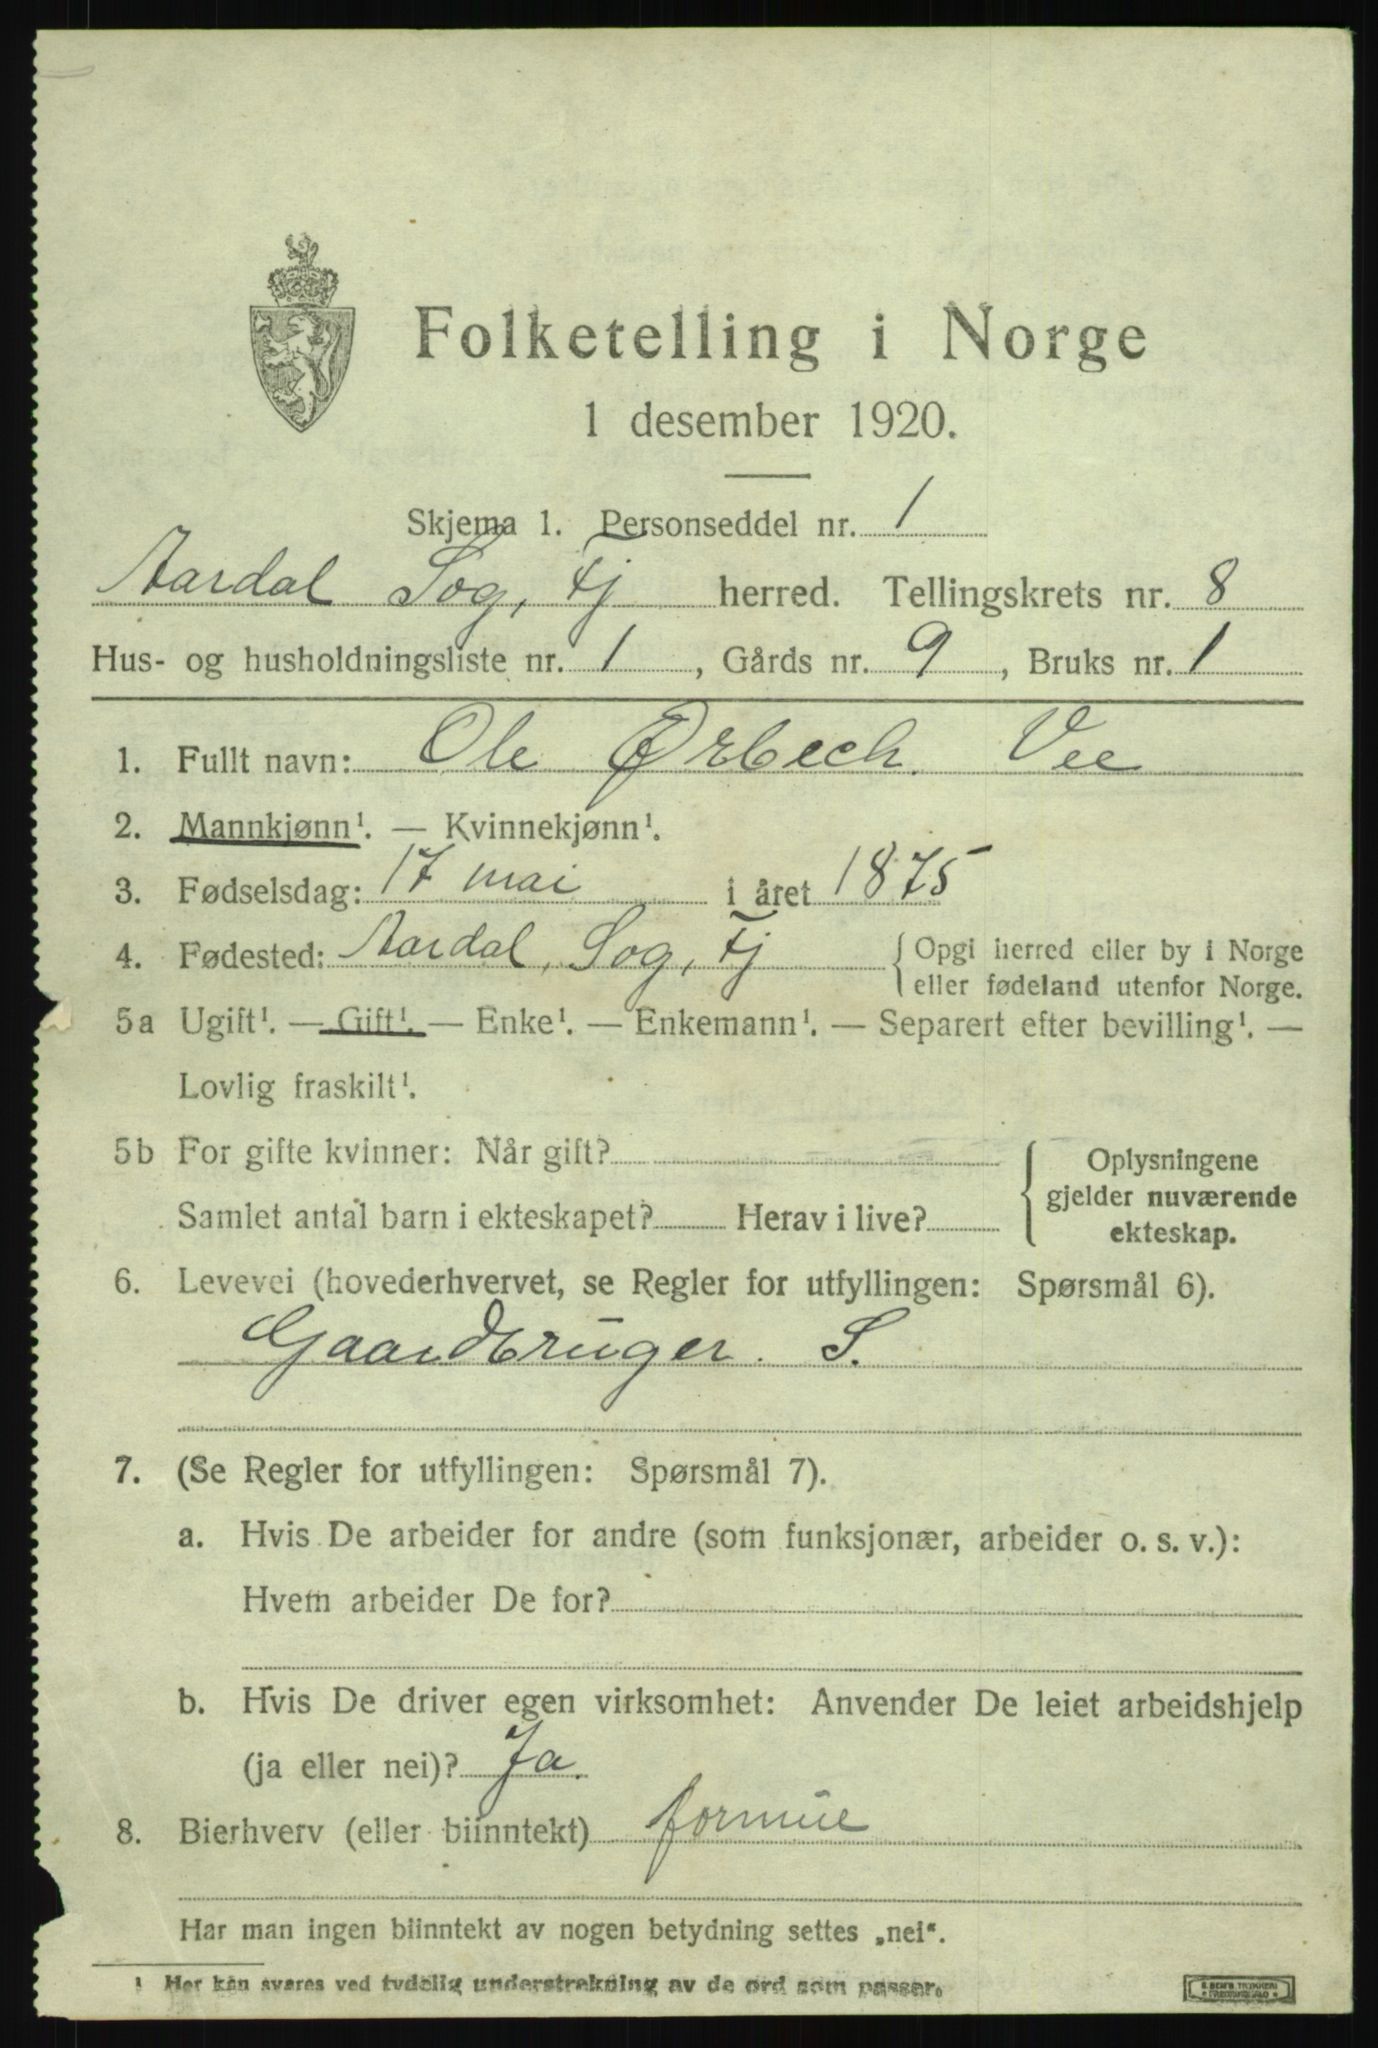 Folketelling i Norge
1 desember 1920.
Skjema 1. Personseddel nr. 1
Aardal Sog, Fj herred. Tellingskrets nr. 8
Hus- og husholdningsliste nr. 1, Gårds nr. 9, Bruks nr. 1
1. Fullt navn: Ole Ørbech Vee
2. Mannkjønn¹. — Kvinnekjønn¹.
3. Fødselsdag: 17 mai i året 1875
4. Fødested: Aardal, Sog, Fj { Opgi herred eller by i Norge
eller fødeland utenfor Norge.
5a Ugift¹. — Gift¹. — Enke¹. — Enkemann¹. — Separert efter bevilling¹. —
Lovlig fraskilt¹.
5b For gifte kvinner: Når gift?
Samlet antal barn i ekteskapet? Herav i live?
{ Oplysningene
gjelder nuværende
ekteskap.
6. Levevei (hovederhvervet, se Regler for utfyllingen: Spørsmål 6).
Gaardbruger S.
7. (Se Regler for utfyllingen: Spørsmål 7).
a. Hvis De arbeider for andre (som funksjonær, arbeider o. s. v.):
Hvem arbeider De for?
b. Hvis De driver egen virksomhet: Anvender De leiet arbeidshjelp
(ja eller nei)? Ja.
8. Bierhverv (eller biinntekt) formue
Har man ingen biinntekt av nogen betydning settes „nei“.
¹ Her kan svares ved tydelig understrekning av de ord som passer.